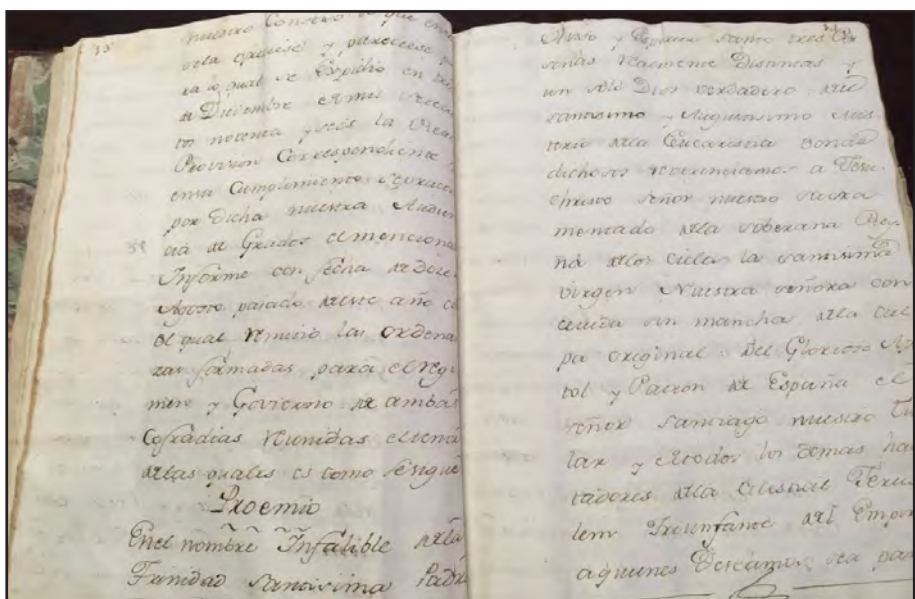 33
nuestro Consejo lo que en
vista quedese y pareciese
sa qual se Expidio en
de Diciembre de mil
tos noventa y seis la Real
Provision Correspondiente
en su Cumplimento
por Dicha nuestra Audien
cia de Grados el menciona
Informe con fecha de Doze
Agosto pasado de este año
el qual remitio las Ordena
zas formadas para el regi
men y Govierno de ambas
Cofradias reunidas el tenor
de las quales es como se sigue
Proemio
En el nombre Infalible de la
Trinidad Santisima Padre
Hijo y Espiritu Santo tres Per
sonas realmente Distintas y
un solo Dios verdadero del
santisimo y Augustisimo Mis
terio de la Eucaristia donde
dichosos reverenciamos a Jesu
christo Señor nuestro Sacra
mentado de la soberana Rey
na de los Cielos la santisima
virgen Nuestra señora con
cevida sin mancha de la cul
pa original del Glorioso Aps
tol y Patron de España el
señor Santiago nuestro Tu
lar y de todos los demas ha
vitadores de la Celestial Jerus
lem Triunfante del Empir
a quienes Deseamos sea par